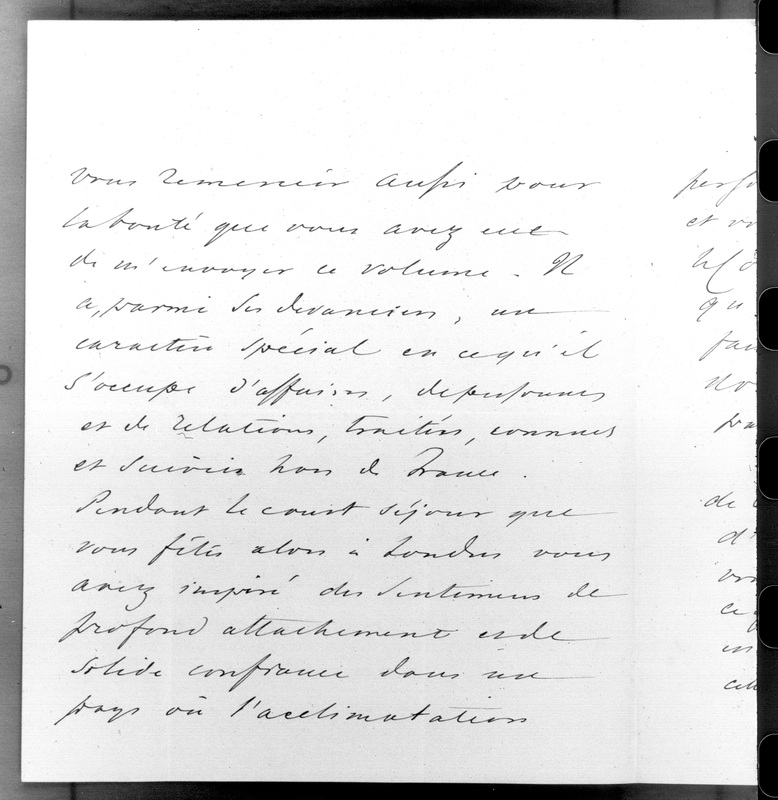 vous remercier aussi pour
la bonté que vous avez eue
de m'envoyer ce volume. Il
a, parmi ses devanciers, un
caractère spécial en ce qu'il
s'occupe d'affaires, de personnes
et de relations, traitées, connues
et suivies hors de France.
Pendant le court séjour que
vous fîtes alors à Londres vous
avez inspiré des sentimens de
profond attachement et de
solide confiance dans un
pays où l'acclimatation
et
qu
de